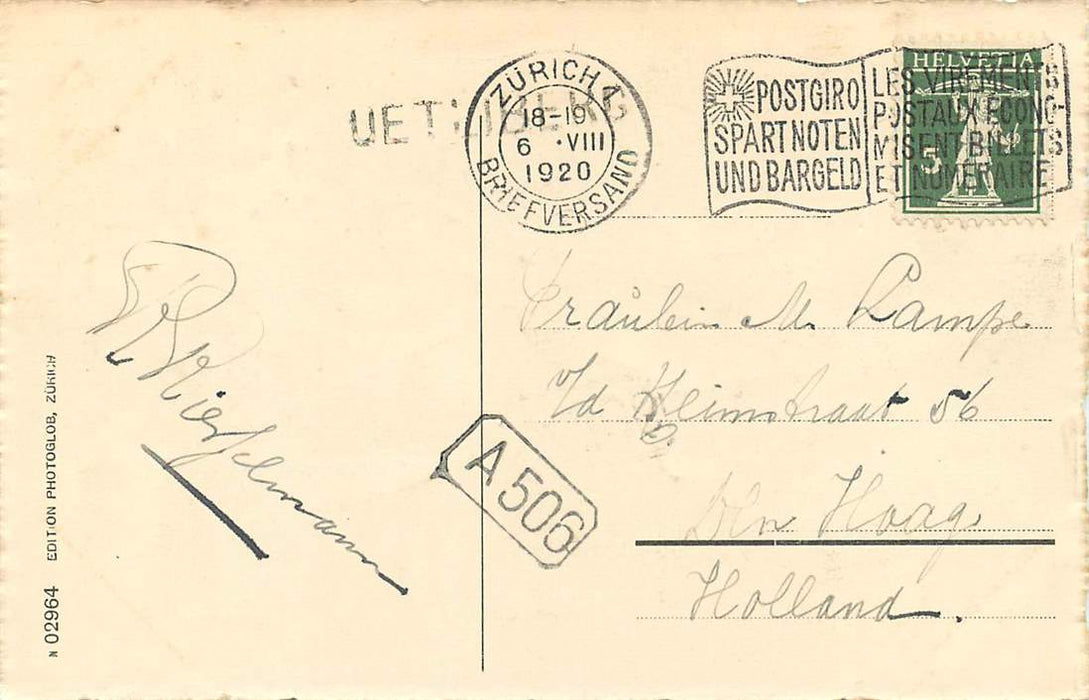 UETLIBERG
ZÜRICH 1
18-19
6 ·VIII
1920
BRIEFVERSAND
POSTGIRO
SPART NOTEN
UND BARGELD
LES VIREMENTS
POSTAUX ÉCONO-
MISENT BILLETS
ET NUMÉRAIRE
HELVETIA
5
Fräulein M. Lampe
v/d Heimstraat 56
Den Haag
Holland.
A 506
N 02964 EDITION PHOTOGLOB, ZÜRICH